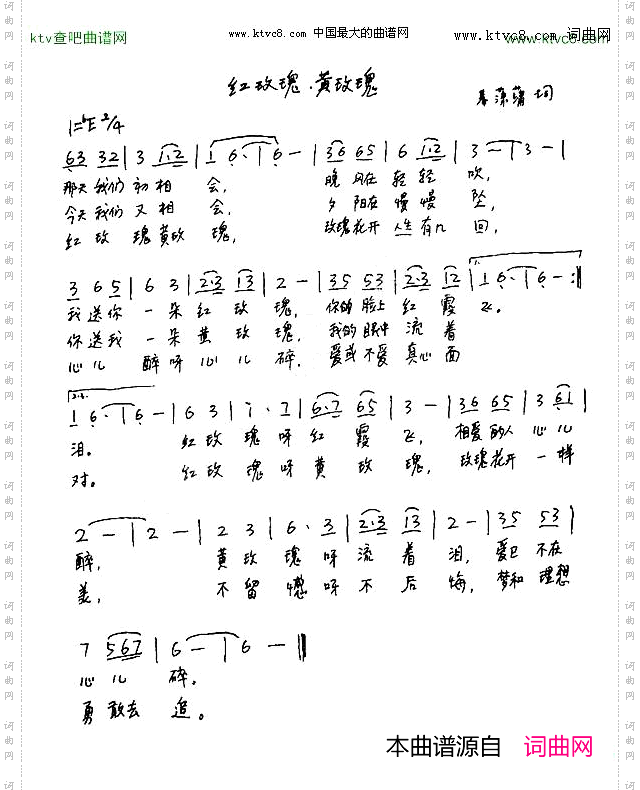 ktv查吧曲谱网
www.ktvc8.com 中国最大的曲谱网
www.ktvc8.com 词曲网
红玫瑰.黄玫瑰
词
1=bE 2/4
63 32 | 3 1·2 | 1 6· | 6 — | 36 65 | 6 1·2 | 3 — | 3 — |
那天我们 初相 会, 晚风在 轻轻 吹,
今天我们 又相 会, 夕阳在 慢慢 坠,
红玫 瑰黄玫 瑰, 玫瑰花开 人生有几 回,
3 6 5 | 6 3 | 2·3 13 | 2 — | 35 53 | 2·3 12 | 1 6· | 6 — :||
我送你 一朵红玫 瑰, 你的脸上 红霞 飞。
你送我 一朵黄玫 瑰, 我的眼中 流着
心儿 醉呀心儿 碎, 爱或不爱 真心面
2.3.
1 6· | 6 — | 6 3 | i · 7 | 6·7 65 | 3 — | 36 65 | 3 61 |
泪。 红玫 瑰呀红霞 飞, 相爱的人 心儿
对。 红玫 瑰呀黄玫 瑰, 玫瑰花开 一样
2 — | 2 — | 2 3 | 6 · 3 | 2·3 13 | 2 — | 35 53 |
醉, 黄玫 瑰呀流着 泪, 爱已不在
美, 不留 憾呀不后 悔, 梦和理想
7 567 | 6 — | 6 — ||
心儿 碎。
勇敢去 追。
本曲谱源自 词曲网
词曲网